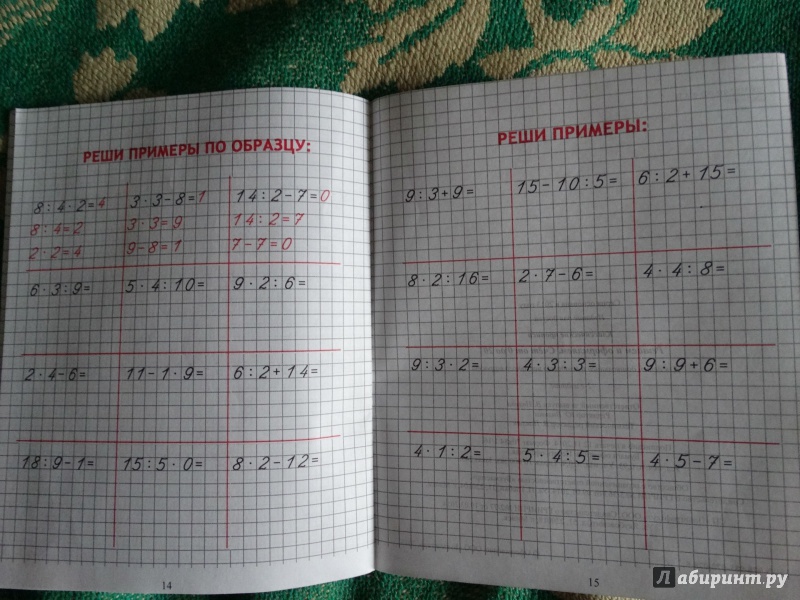 РЕШИ ПРИМЕРЫ ПО ОБРАЗЦУ:
8 : 4 · 2 = 4 3 · 3 - 8 = 1 14 : 2 - 7 = 0
8 : 4 = 2 3 · 3 = 9 14 : 2 = 7
2 · 2 = 4 9 - 8 = 1 7 - 7 = 0
6 · 3 : 9 = 5 · 4 : 10 = 9 · 2 : 6 =
2 · 4 - 6 = 11 - 1 · 9 = 6 : 2 + 14 =
18 : 9 - 1 = 15 : 5 · 0 = 8 · 2 - 12 =
14
РЕШИ ПРИМЕРЫ:
9 : 3 + 9 = 15 - 10 : 5 = 6 : 2 + 15 =
8 · 2 : 16 = 2 · 7 - 6 = 4 · 4 : 8 =
9 : 3 · 2 = 4 · 3 : 3 = 9 : 9 + 6 =
4 · 1 : 2 = 5 · 4 : 5 = 4 · 5 - 7 =
15
Лабиринт.ру